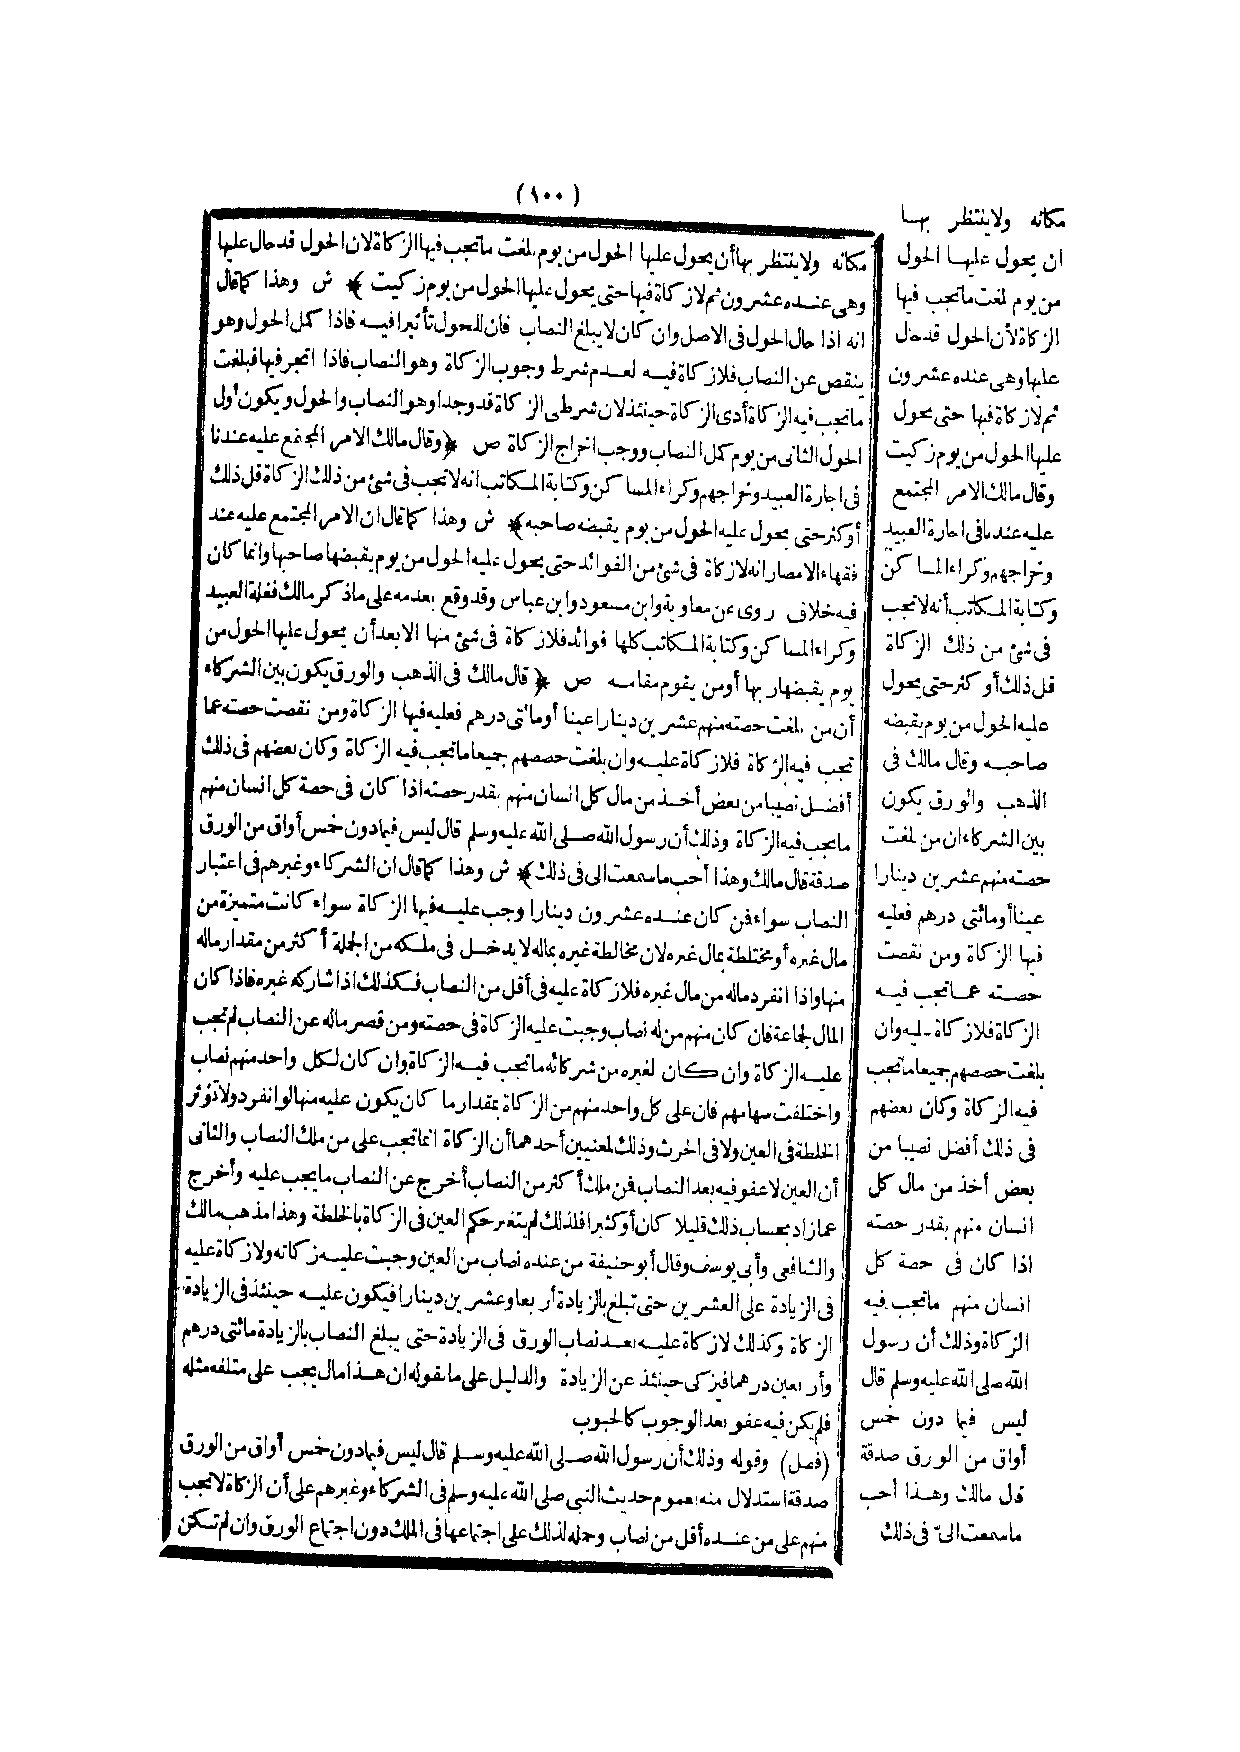 (١٠٠)
مكانه ولا ينتظر بها أن يحول عليها الحول من يوم بلغت ما تجب فيها الزكاة لان الحول قد حال عليها
وهى عنده عشرون ثم لا زكاة فيها حتى يحول عليها الحول من يوم زكيت ﴾ ش وهذا كما قال
انه اذا حال الحول فى الاصل وان كان لا يبلغ النصاب فان للحول تأثيرا فيه فاذا كمل الحول وهو
ينقص عن النصاب فلا زكاة فيه لعدم شرط وجوب الزكاة وهو النصاب فاذا اتجر فيها فبلغت
ما تجب فيه الزكاة أدى الزكاة حينئذ لان شرطى الزكاة قد وجدا وهو النصاب والحول ويكون أول
الحول الثانى من يوم كمل النصاب ووجب اخراج الزكاة ص ﴿ وقال مالك الامر المجتمع عليه عندنا
فى اجارة العبيد وخراجهم وكراء المساكن وكتابة المكاتب انه لا تجب فى شئ من ذلك الزكاة قل ذلك
أو كثر حتى يحول عليه الحول من يوم يقبضه صاحبه ﴾ ش وهذا كما قال ان الامر المجتمع عليه عند
فقهاء الامصار انه لا زكاة فى شئ من الفوائد حتى يحول عليه الحول من يوم يقبضها صاحبها وانما كان
فيه خلاف روى عن معاوية وابن مسعود وابن عباس وقد وقع بعده على ما ذكر مالك فغلة العبيد
وكراء المساكن وكتابة المكاتب كلها فوائد فلا زكاة فى شئ منها الا بعد أن يحول عليها الحول من
يوم يقبضها ربها أو من يقوم مقامه ص ﴿ قال مالك فى الذهب والورق يكون بين الشركاء
أن من بلغت حصته منهم عشرين دينارا عينا أو مائتى درهم فعليه فيها الزكاة ومن نقصت حصته عما
تجب فيه الزكاة فلا زكاة عليه وان بلغت حصصهم جميعا ما تجب فيه الزكاة وكان بعضهم فى ذلك
أفضل نصيبا من بعض أخذ من مال كل انسان منهم بقدر حصته اذا كان فى حصة كل انسان منهم
ما تجب فيه الزكاة وذلك أن رسول الله صلى الله عليه وسلم قال ليس فيما دون خمس أواق من الورق
صدقة قال مالك وهذا أحب ما سمعت الى فى ذلك ﴾ ش وهذا كما قال ان الشركاء وغيرهم فى اعتبار
النصاب سواء فمن كان عنده عشرون دينارا وجب عليه فيها الزكاة سواء كانت متميزة من
مال غيره أو مختلطة بمال غيره لان مخالطة غيره بماله لا يدخل فى ملكه من الجملة أكثر من مقدار ماله
منها واذا انفرد ماله من مال غيره فلا زكاة عليه فى أقل من النصاب فكذلك اذا شاركه غيره فاذا كان
المال لجماعة فان كان منهم من له نصاب وجبت عليه الزكاة فى حصته ومن قصر ماله عن النصاب لم تجب
عليه الزكاة وان كان لغيره من شركائه ما تجب فيه الزكاة وان كان لكل واحد منهم نصاب
واختلفت سهامهم فان على كل واحد منهم من الزكاة بمقدار ما كان يكون عليه منها لو انفرد ولا تؤثر
الخلطة فى العين ولا فى الحرث وذلك لمعنيين أحدهما أن الزكاة انما تجب على من ملك النصاب والثانى
أن العين لا عفو فيه بعد النصاب فمن ملك أكثر من النصاب أخرج عن النصاب ما يجب عليه وأخرج
عما زاد بحساب ذلك قليلا كان أو كثيرا فلذلك لم يتغير حكم العين فى الزكاة بالخلطة وهذا مذهب مالك
والشافعى وأبى يوسف وقال أبو حنيفة من عنده نصاب من العين وجبت عليه زكاته ولا زكاة عليه
فى الزيادة على العشرين حتى تبلغ بالزيادة أربعا وعشرين دينارا فيكون عليه حينئذ فى الزيادة
الزكاة وكذلك لا زكاة عليه بعد نصاب الورق فى الزيادة حتى يبلغ النصاب بالزيادة مائتى درهم
وأربعين درهما فيزكى حينئذ عن الزيادة والدليل على ما نقوله ان هذا مال يجب على متلفه مثله
فلم يكن فيه عفو بعد الوجوب كالحبوب
(فصل) وقوله وذلك أن رسول الله صلى الله عليه وسلم قال ليس فيما دون خمس أواق من الورق
صدقة استدلال منه بعموم حديث النبى صلى الله عليه وسلم فى الشركاء وغيرهم على أن الزكاة لا تجب
منهم على من عنده أقل من نصاب وحمله لذلك على اجتماعها فى الملك دون اجتماع الورق وان لم تكن
مكانه ولا ينتظر بها
ان يحول عليها الحول
من يوم بلغت ما تجب فيها
الزكاة لأن الحول قد حال
عليها وهى عنده عشرون
ثم لا زكاة فيها حتى يحول
عليها الحول من يوم زكيت
وقال مالك الامر المجتمع
عليه عندنا فى اجارة العبيد
وخراجهم وكراء المساكن
وكتابة المكاتب أنه لا تجب
فى شئ من ذلك الزكاة
قل ذلك أو كثر حتى يحول
عليه الحول من يوم يقبضه
صاحبه وقال مالك فى
الذهب والورق يكون
بين الشركاء ان من بلغت
حصته منهم عشرين دينارا
عينا أو مائتى درهم فعليه
فيها الزكاة ومن نقصت
حصته عما تجب فيه
الزكاة فلا زكاة عليه وان
بلغت حصصهم جميعا ما تجب
فيه الزكاة وكان بعضهم
فى ذلك أفضل نصيبا من
بعض أخذ من مال كل
انسان منهم بقدر حصته
اذا كان فى حصة كل
انسان منهم ما تجب فيه
الزكاة وذلك أن رسول
الله صلى الله عليه وسلم قال
ليس فيما دون خمس
أواق من الورق صدقة
قال مالك وهذا أحب
ما سمعت الىّ فى ذلك